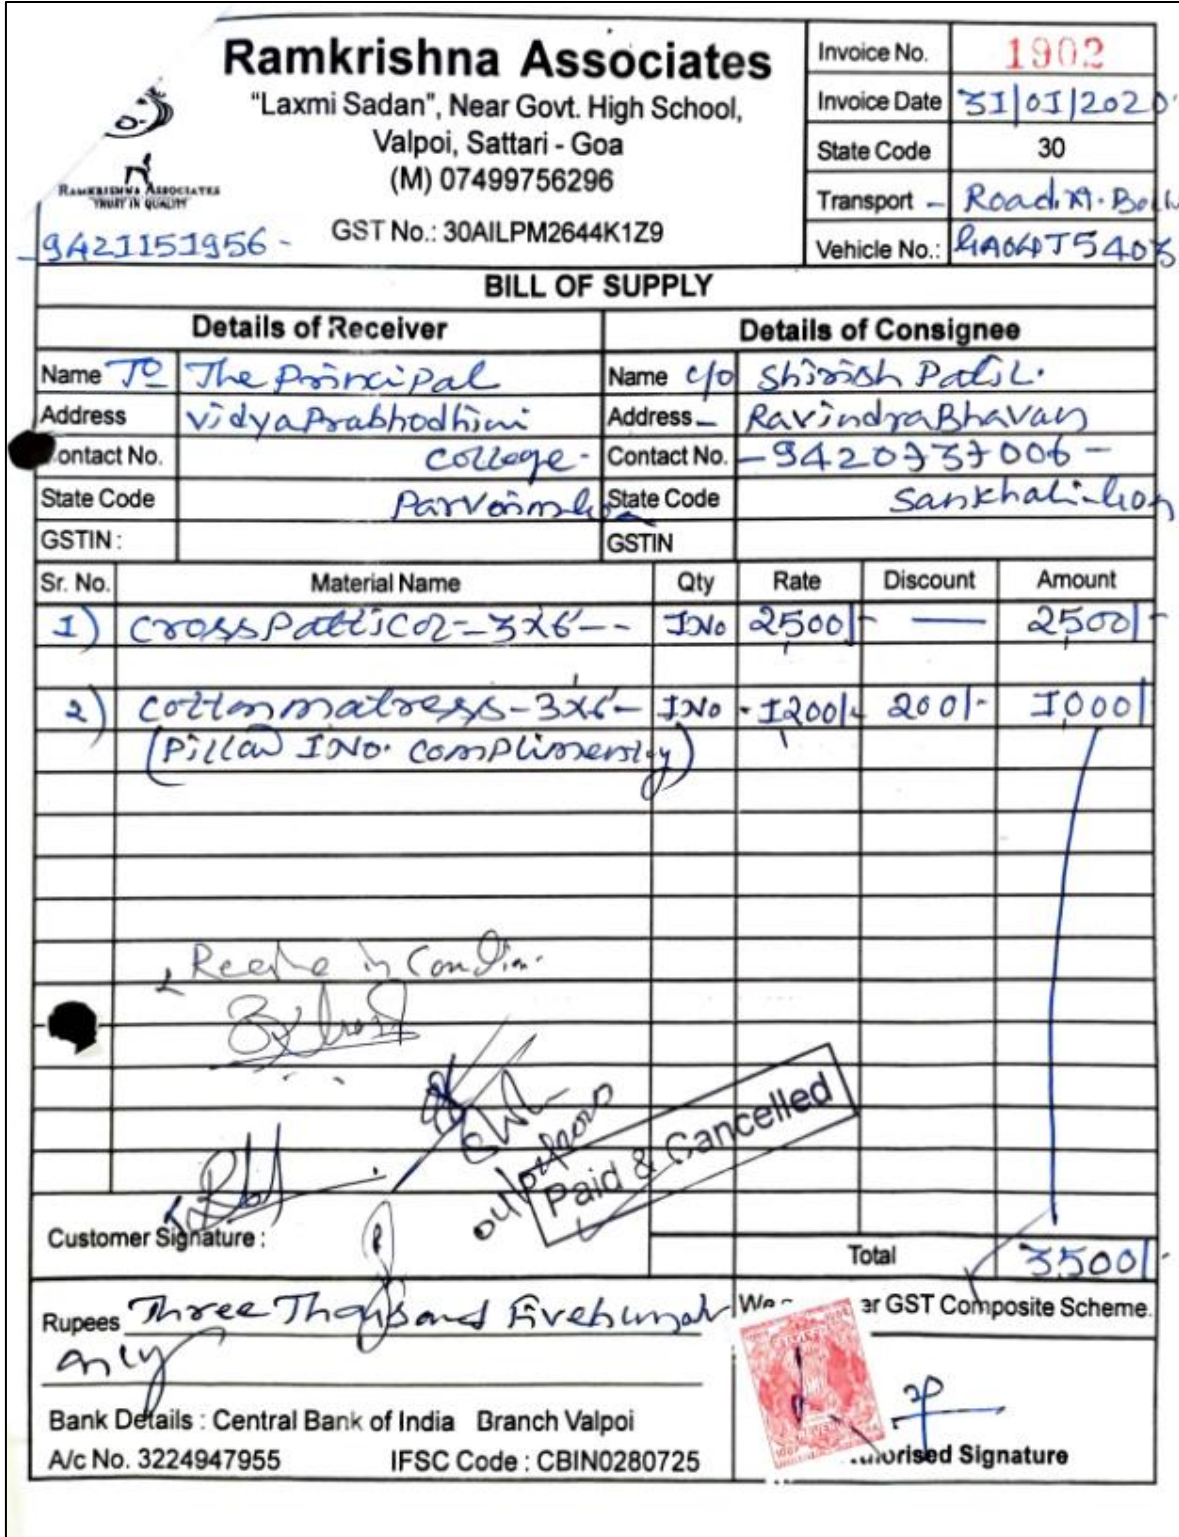 Ramkrishna Associates
"Laxmi Sadan", Near Govt. High School,
Valpoi, Sattari - Goa
(M) 07499756296
GST No.: 30AILPM2644K1Z9
RAMKRISHNA ASSOCIATES
TRUST IN QUALITY
-9421151956-
Invoice No. 1902
Invoice Date 31/01/2020
State Code 30
Transport - Road
Vehicle No.: GA04T5403
BILL OF SUPPLY
Details of Receiver Details of Consignee
Name To The Principal Name c/o Shirish Patil.
Address VidyaPrabhodhini Address - RavindraBhavan
ontact No. College - Contact No. -9420737006-
State Code State Code Sankhali-Goa
GSTIN : GSTIN
Sr. No. Material Name Qty Rate Discount Amount
1) CrossPatti Cot - 3x6 -- 1No 2500/- — 2500/-
2) Cotton matress - 3x6 - 1No 1200/- 200/- 1000/
(Pillow 1No. Complimentry)
Paid & Cancelled
Customer Signature :
Total 3500/-
Rupees Three Thousand Five
only
er GST Composite Scheme.
Bank Details : Central Bank of India Branch Valpoi
A/c No. 3224947955 IFSC Code : CBIN0280725
horised Signature